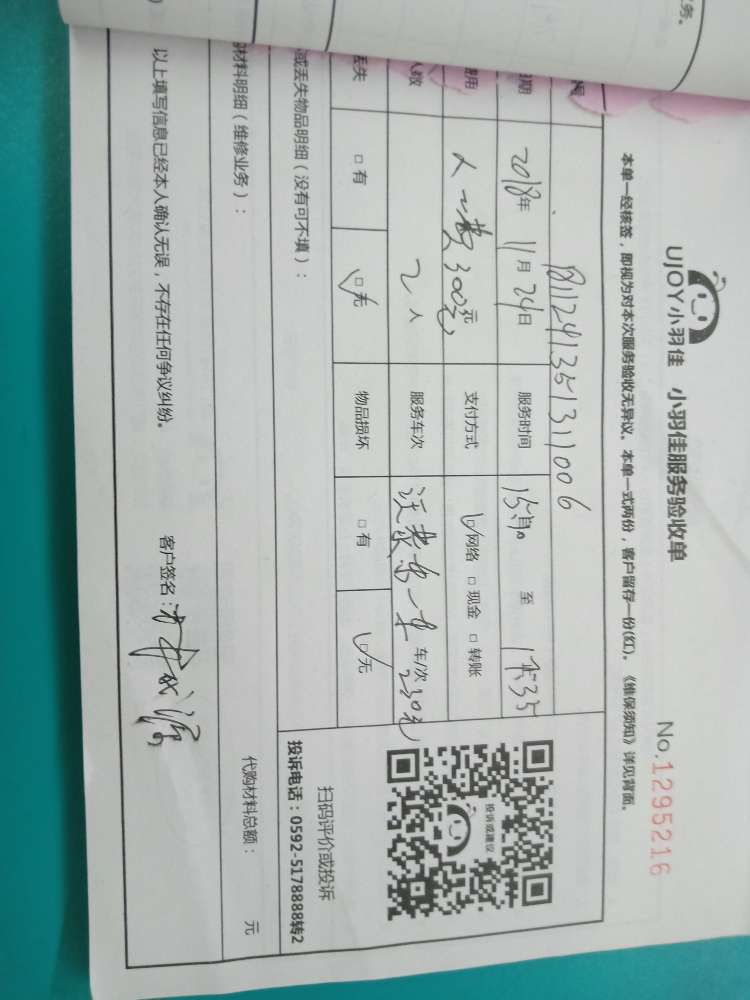 务。
UJOY小羽佳 小羽佳服务验收单
No.1295216
本单一经核签，即视为对本次服务验收无异议。本单一式两份，客户留存一份(红)。《维保须知》详见背面。
日期 2018年 11月 24日 服务时间 至
费用 人工费 300元 支付方式 网络 □ 现金 □ 转账
人数 2 人 服务车次 一车 车/次 230元
丢失 □ 有 □ 无 物品损坏 □ 有 □ 无
或丢失物品明细（没有可不填）：
材料明细（维修业务）：
代购材料总额： 元
以上填写信息已经本人确认无误，不存在任何争议纠纷。
客户签名：
投诉或建议
扫码评价或投诉
投诉电话：0592-5178888转2